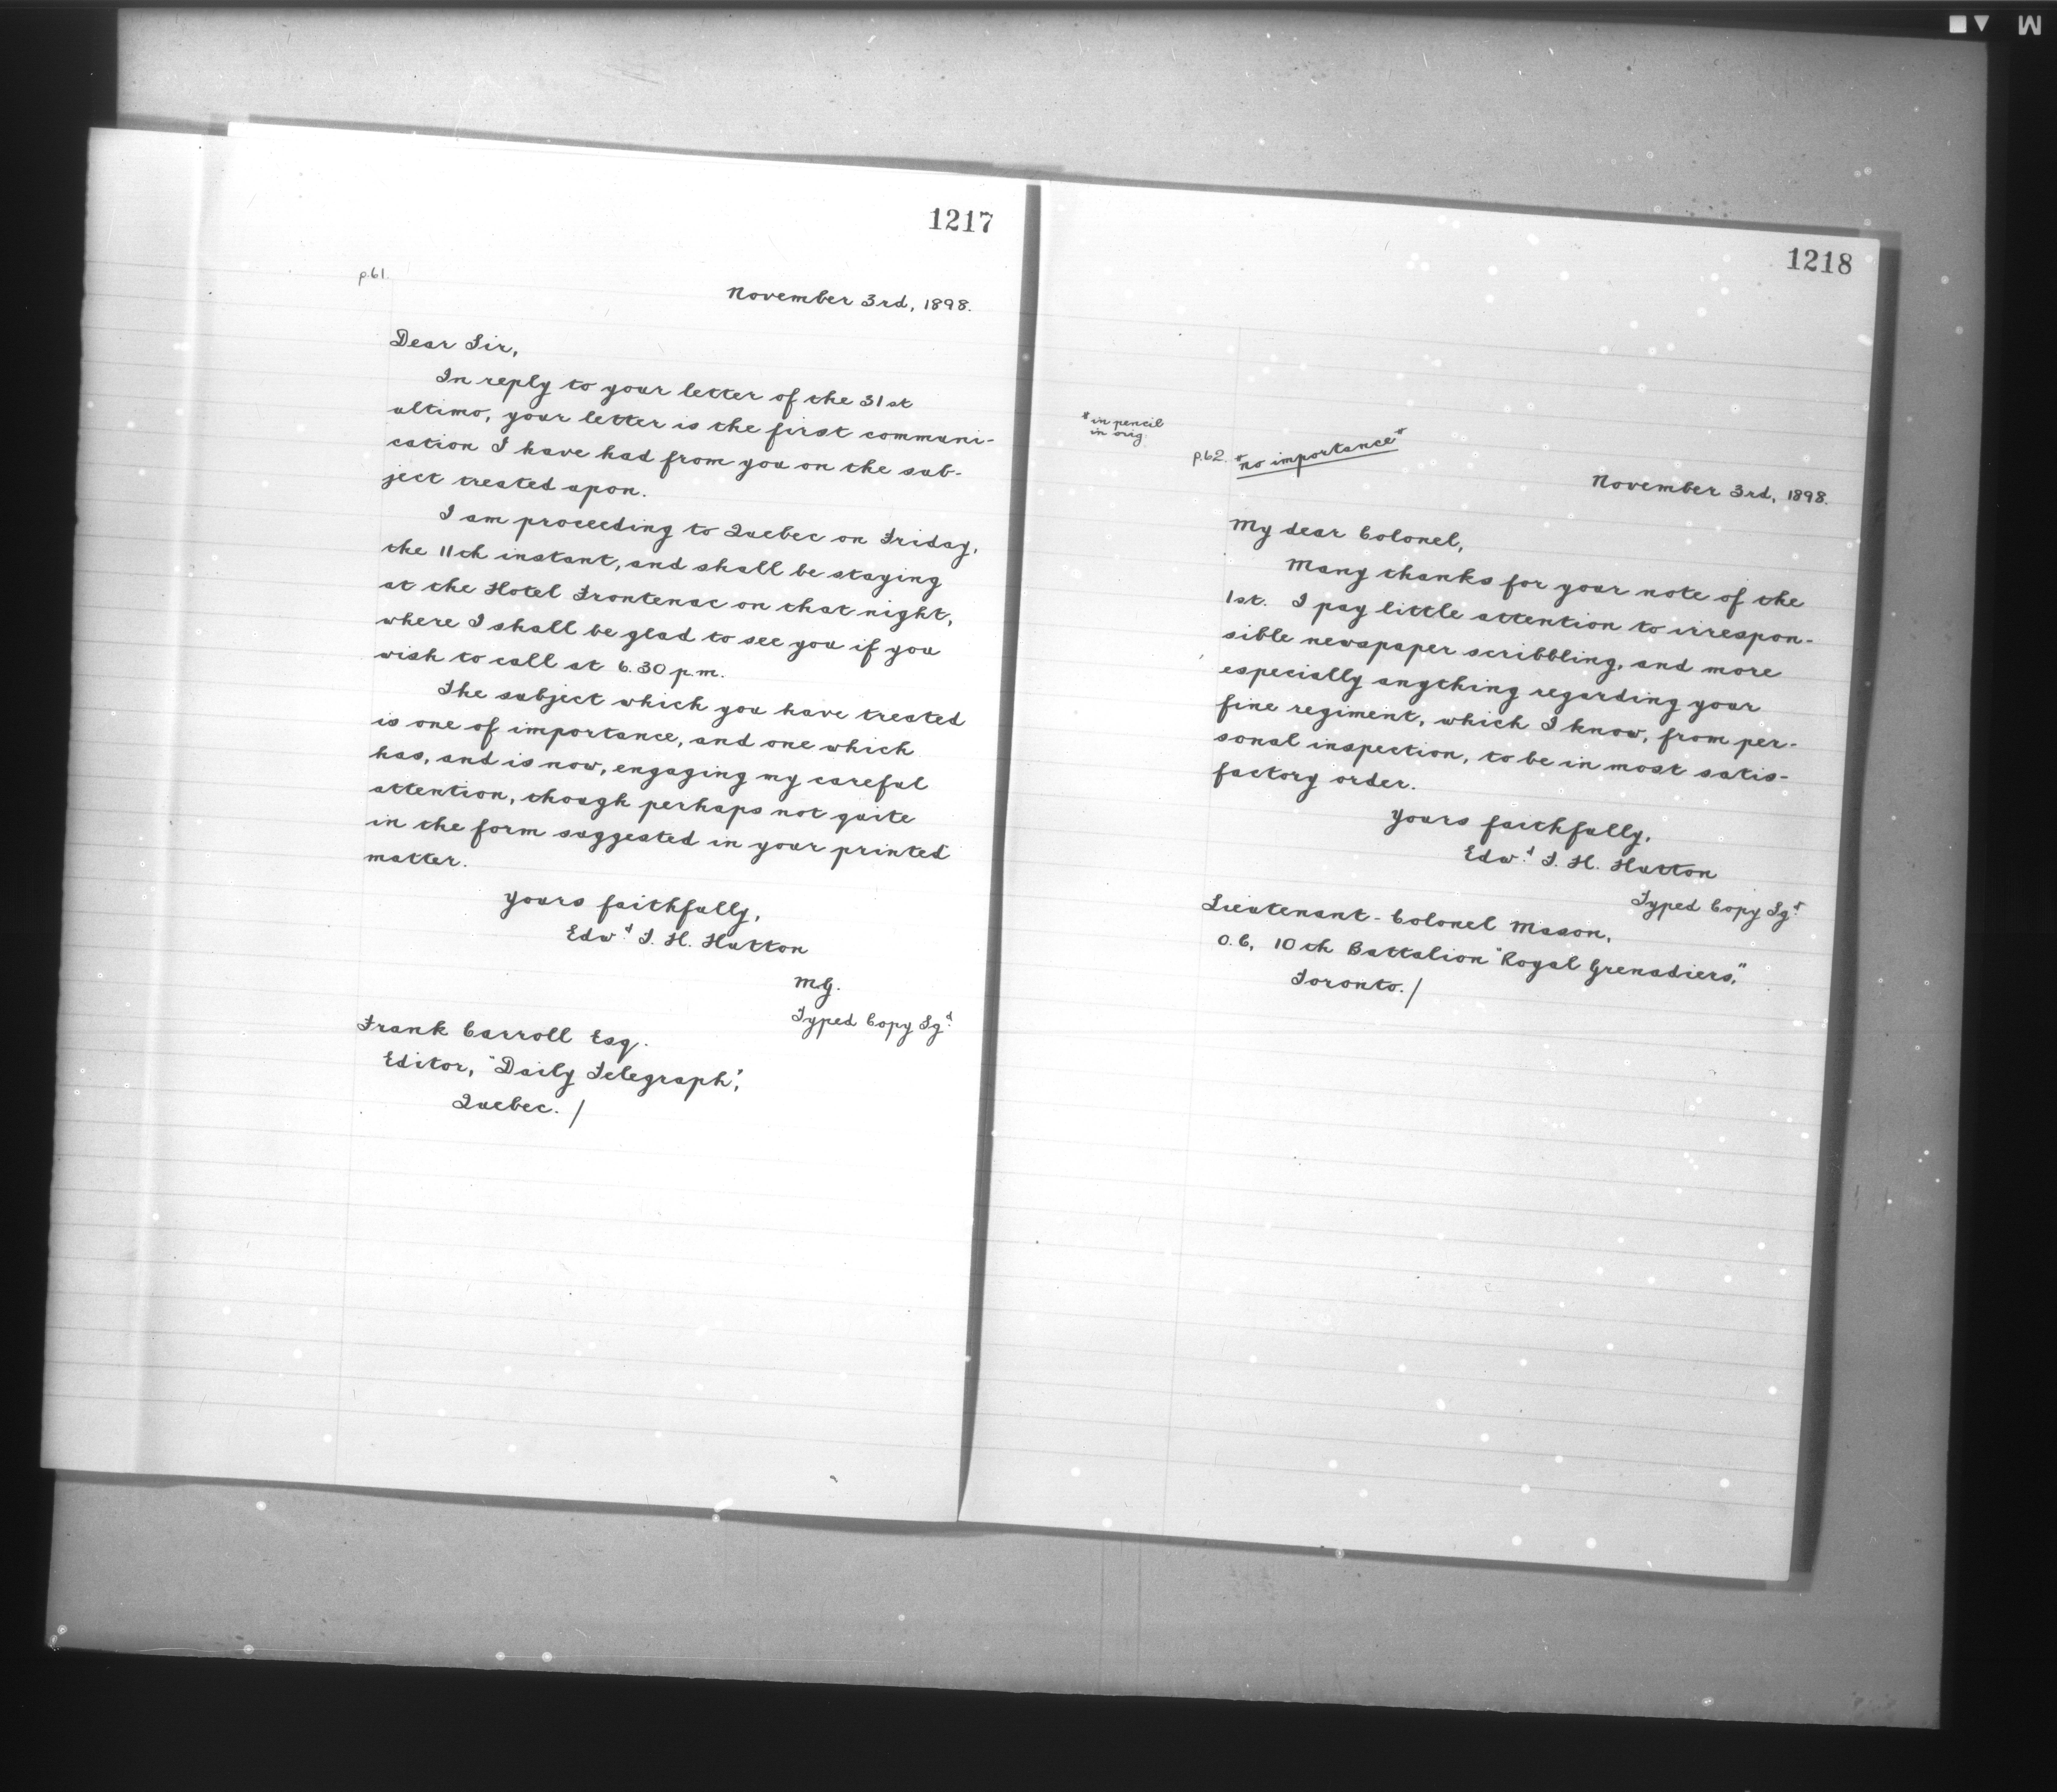 1217
p.61.
November 3rd, 1898.
Dear Sir,
In reply to your letter of the 31st
ultimo, your letter is the first communi-
cation I have had from you on the sub-
ject treated upon.
I am proceeding to Quebec on Friday,
the 11th instant, and shall be staying
at the Hotel Frontenac on that night,
where I shall be glad to see you if you
wish to call at 6.30 p.m.
The subject which you have treated
is one of importance, and one which
has, and is now, engaging my careful
attention, though perhaps not quite
in the form suggested in your printed
matter.
Yours faithfully,
Edwd T. H. Hutton
M.G.
Typed Copy Sgd
Frank Carroll Esq.
Editor, "Daily Telegraph",
Quebec. /
1218
*in pencil
in orig.
p.62. *no importance*
November 3rd, 1898.
My dear Colonel,
Many thanks for your note of the
1st. I pay little attention to irrespon-
sible newspaper scribbling, and more
especially anything regarding your
fine regiment, which I know, from per-
sonal inspection, to be in most satis-
factory order.
Yours faithfully,
Edwd T. H. Hutton
Typed Copy Sgd
Lieutenant-Colonel Mason,
O.C, 10th Battalion "Royal Grenadiers,"
Toronto. /
M